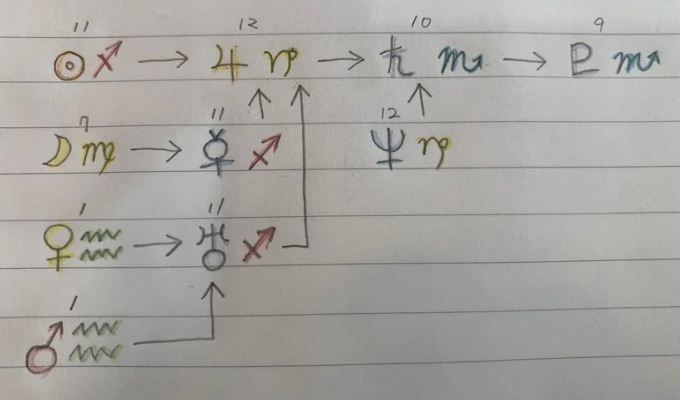 11 12 10 9
☉ ♐ → ♃ ♑ → ♄ ♏ → ♇ ♏
7 11 12
☽ ♍ → ☿ ♐ ♆ ♑
1 11
♀ ♒ → ♅ ♐
1
♂ ♒